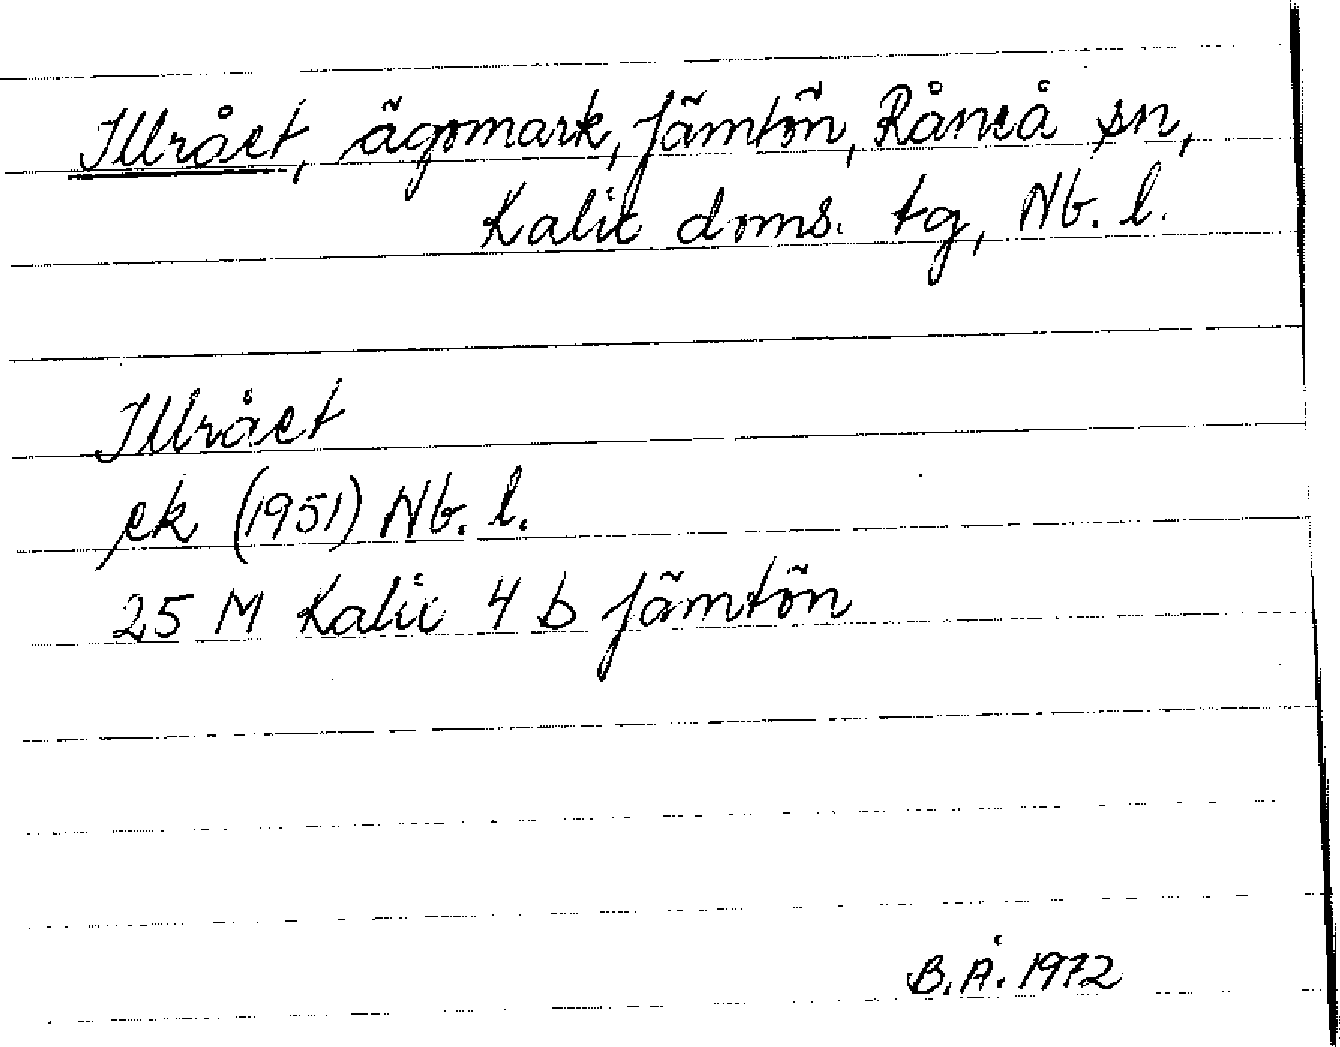 Illrået, ägomark, Jämtön, Råneå sn,
Kalix doms. tg, Nb. l.
Illrået
ek (1951) Nb. l.
25 M Kalix 4 b Jämtön
B.Å. 1972